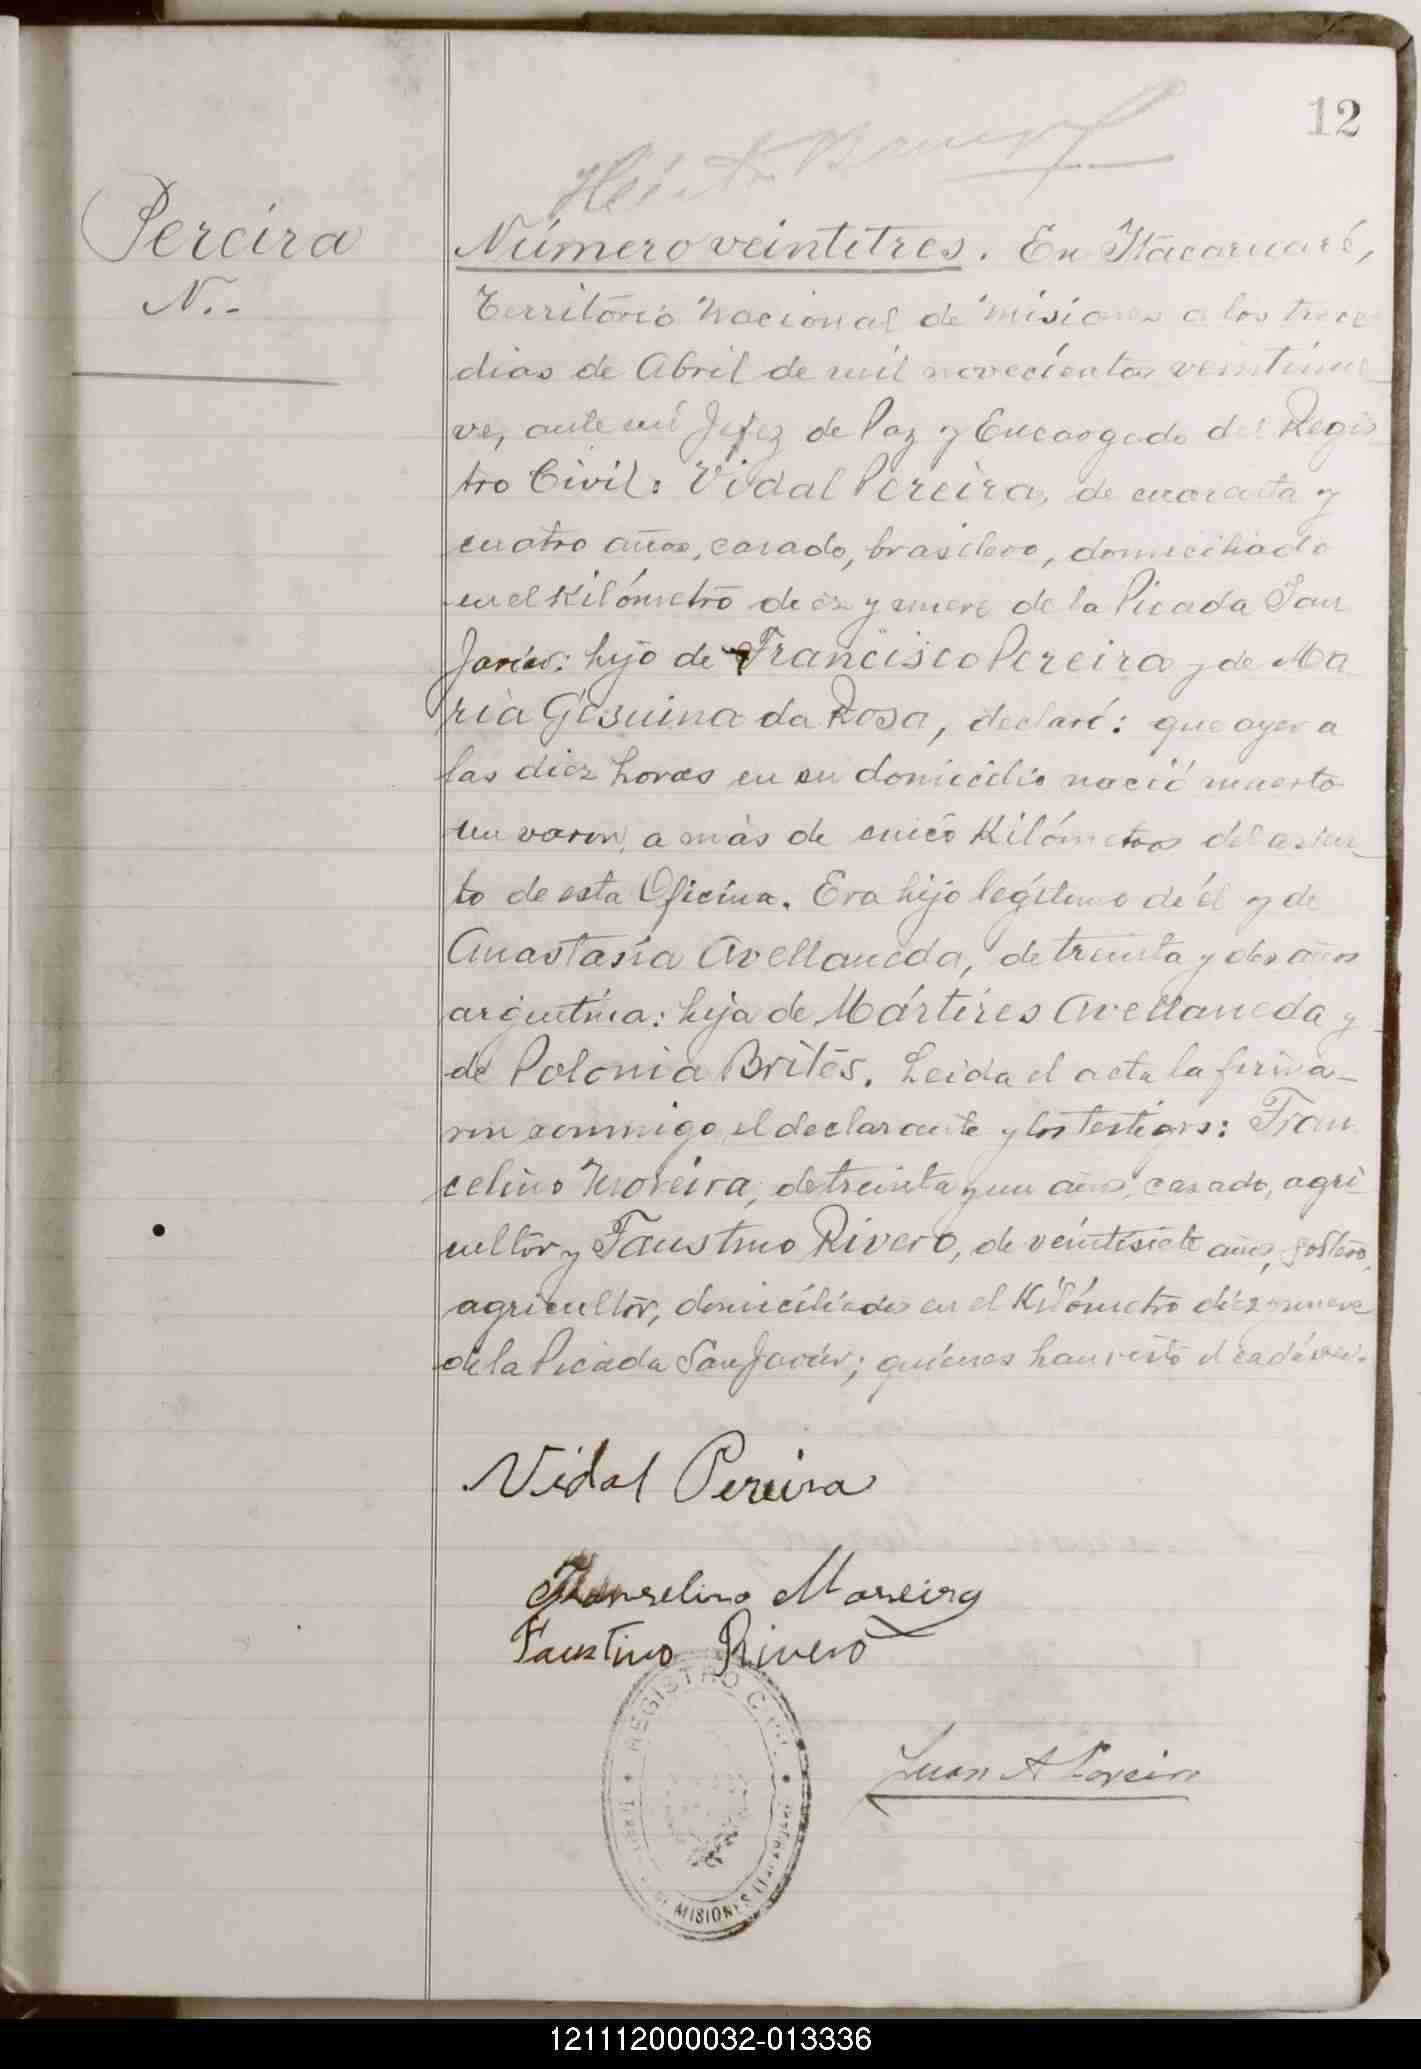 12
Pereira
N..
Número veintitres. En Itacaruaré,
Territorio Nacional de Misiones a los trece
dias de Abril de mil novecientos veintinue-
ve, ante mi Jefez de Paz y Encargado del Regis-
tro Civil: Vidal Pereira, de cuarenta y
cuatro años, casado, brasilero, domiciliado
en el Kilómetro diez y nueve de la Picada San
Javier: hijo de Francisco Pereira y de Ma-
ria Gesuina da Rosa, declaró: que ayer a
las diez horas en su domicilio nació muerto
un varon, a más de cinco Kilómetros del asien-
to de esta Oficina. Era hijo legítimo de él y de
Anastasia Avellaneda, de treinta y dos años
argentina: hija de Mártires Avellaneda y
de Polonia Brites. Leida el acta la firma-
ron conmigo, el declarante y los testigos: Fran-
celino Moreira, de treinta y un años, casado, agri-
cultor y Faustino Rivero, de veintisiete años, soltero,
agricultor, domiciliados en el Kilómetro diez y nueve
de la Picada San Javier; quienes han visto el cadáver.
Vidal Pereira
Franselino Moreira
Faustino Rivero
REGISTRO CIVIL
MISIONES
Juan A Pereira
121112000032-013336